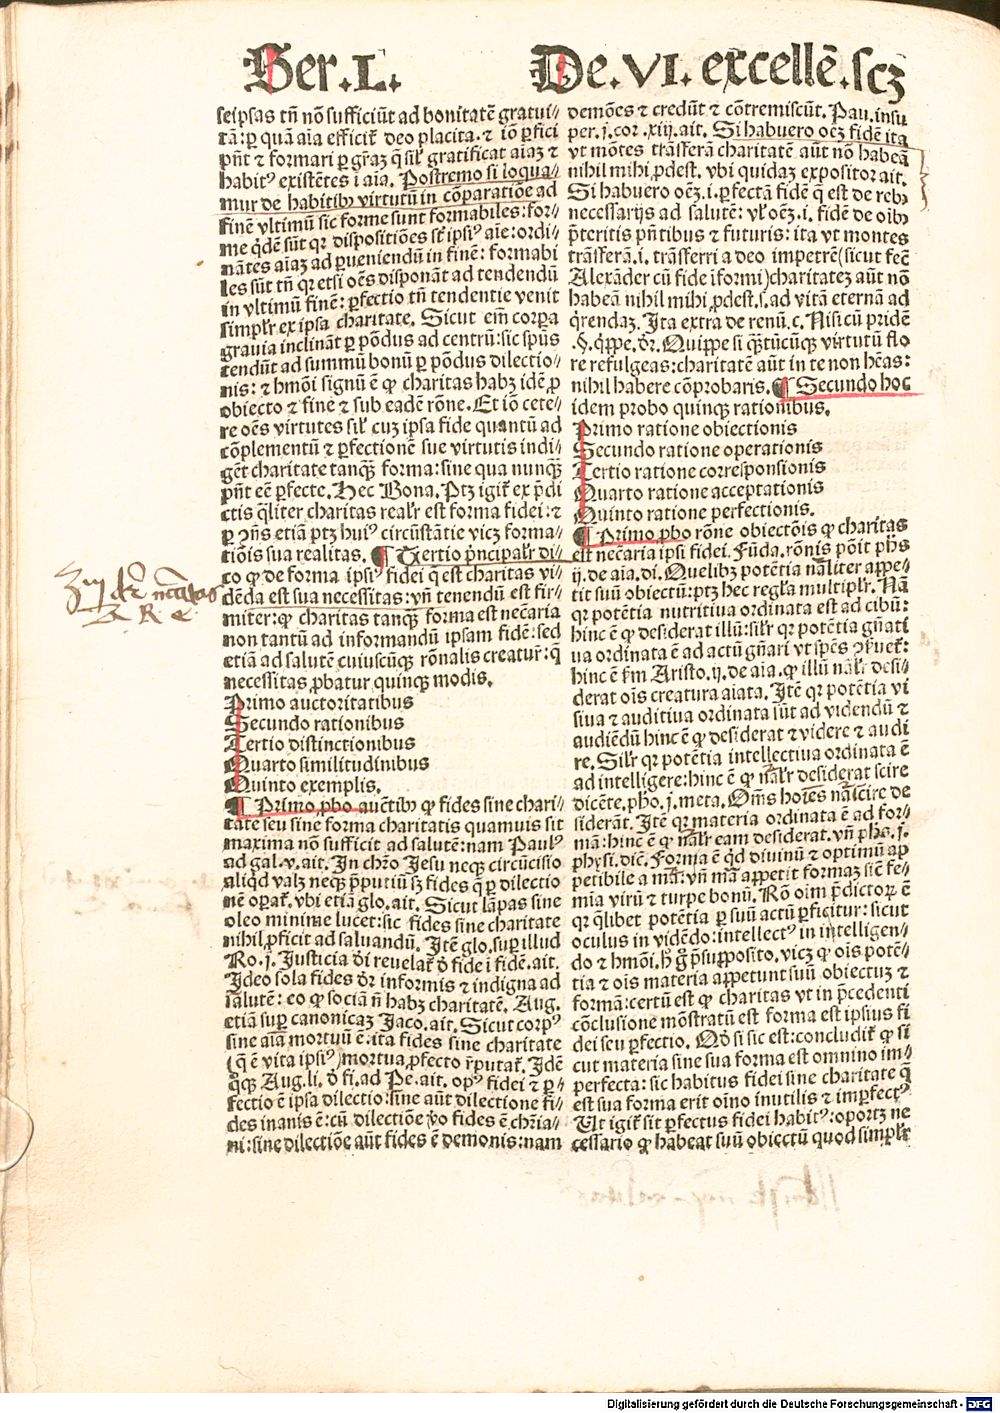 Ser.L. De.VI.excellē.scꝫ
seipsas tñ nō sufficiūt ad bonitatē gratui⸗
tā: ꝑ quā aīa efficit᷑ deo placita. ⁊ iō ꝑfici
pñt ⁊ formari ꝑ gr̄aꝫ q̄ sil̓ gratificat aīaꝫ ⁊
habitꝰ existētes ī aīa. Postremo si loqua⸗
mur de habitibꝰ virtutū in cōparatiōe ad
finē vltimū sic forme sunt formabiles: for⸗
me q̇dē sūt qꝛ dispositiōes st̄ ipsiꝰ aīe: ordi⸗
nātes aīaꝫ ad ꝑueniendū in finē: formabi
les sūt tñ qꝛ etsi oēs disponāt ad tendendū
in vltimū finē: ꝑfectio tñ tendentie venit
simpl̓r ex ipsa charitate. Sicut em̄ corpora
grauia inclināt ꝑ pōdus ad centrū: sic spūs
tendūt ad summū bonū ꝑ pōdus dilectio⸗
nis: ⁊ hmōi signū ē ꝙ charitas habꝫ idē ꝓ
obiecto ⁊ fine ⁊ sub eadē rōne. Et iō cete⸗
re oēs virtutes sil̓ cuꝫ ipsa fide quantū ad
cōplementū ⁊ ꝑfectionē sue virtutis indi⸗
gēt charitate tanq̄ꝫ forma: sine qua nunq̄ꝫ
pñt eē ꝑfecte. Hec Bona. Ptꝫ igit᷑ ex p̄di
ctis q̄liter charitas real̓r est forma fidei: ⁊
ꝑ ꝯñs etiā ptꝫ huiꝰ circūstātie vicꝫ forma⸗
tiōis sua realitas. ¶ Tertio p̄ncipal̓r di⸗
co ꝙ de forma ipsiꝰ fidei q̄ est charitas vi⸗
dēda est sua necessitas: vñ tenendū est fir⸗
miter: ꝙ charitas tanq̄ꝫ forma est nec̄aria
non tantū ad informandū ipsam fidē: sed
etiā ad salutē cuiuscūqꝫ rōnalis creatur̄: q̄
necessitas ꝓbatur quinqꝫ modis.
Primo auctoritatibus
Secundo rationibus
Tertio distinctionibus
Quarto similitudinibus
Quinto exemplis.
¶ Primo ꝓbo auc̄tibꝰ ꝙ fides sine chari⸗
tate seu sine forma charitatis quamuis sit
maxima nō sufficit ad salutē: nam Paulꝰ
ad gal. v. ait. In chr̄o Iesu neqꝫ circūcisio
aliq̇d valꝫ neqꝫ p̄putiū sꝫ fides q̄ ꝑ dilectio
nē oꝑat᷑. vbi etiā glo. ait. Sicut lāpas sine
oleo minime lucet: sic fides sine charitate
nihil ꝓficit ad saluandū. Itē glo. suꝑ illud
Ro. j. Iusticia dī reuelat᷑ d̄ fide ī fidē. ait.
Ideo sola fides dr̄ informis ⁊ indigna ad
salutē: eo ꝙ sociā ñ habꝫ charitatē. Aug.
etiā suꝑ canonicaꝫ Iaco. ait. Sicut corpꝰ
sine aīaā mortuū ē: ita fides sine charitate
(q̄ ē vita ipsiꝰ) mortua ꝓfecto r̄putat᷑. Idē
q̊qꝫ Aug. li. d̄ fi. ad Pe. ait. opꝰ fidei ⁊ ꝑ⸗
fectio ē ipsa dilectio: sine aūt dilectione fi⸗
des inanis ē: cū dilectiōe v̊o fides ē chr̄ia⸗
ni: sine dilectiōe aūt fides ē demonis: nam
demōes ⁊ credūt ⁊ cōtremiscūt. Pau. insu
per. j. cor. xiij. ait. Si habuero oēꝫ fidē ita
vt mōtes trāsferā charitatē aūt nō habeā
nihil mihi ꝓdest. vbi quidaꝫ expositor ait.
Si habuero oēꝫ .i. ꝑfectā fidē q̄ est de rebꝰ
necessarijs ad salutē: vl̓ oēꝫ .i. fidē de oībꝰ
p̄teritis pñtibus ⁊ futuris: ita vt montes
trāsferā .i. trāsferri a deo impetrē (sicut fec̄
Alexāder cū fide īformi) charitateꝫ aūt nō
habeā nihil mihi ꝓdest .s. ad vitā eternā ad
q̄rendaꝫ. Ita extra de renū. c. Nisi cū pridē
.§. q̇ppe. dr̄. Quippe si q̄ꝫtūcūqꝫ virtutū flo
re refulgeas: charitatē aūt in te non hēas:
nihil habere cōprobaris. ¶ Secundo hoc
idem probo quinqꝫ rationibus.
Primo ratione obiectionis
Secundo ratione operationis
Tertio ratione corresponsionis
Quarto ratione acceptationis
Quinto ratione perfectionis.
¶ Primo ꝓbo rōne obiectōis ꝙ charitas
est nec̄aria ipsi fidei. Fūda. rōnis pōit ph̄s
ij. de aīa. dī. Quelibꝫ potētia nāliter appe⸗
tit suū obiectū: ptꝫ hec regl̄a multipl̓r. Nā
qꝛ potētia nutritiua ordinata est ad cibū:
hinc ē ꝙ desiderat illū: sil̓r qꝛ potētia gn̄ati
ua ordinata ē ad actū gn̄ari vt spēs ꝯẜuet᷑:
hinc ē ẜm Aristo. ij. de aīa. ꝙ illū nāl̓r desi⸗
derat oīs creatura aīata. Itē qꝛ potētia vi
siua ⁊ auditiua ordinata sūt ad videndū ⁊
audiēdū hinc ē ꝙ desiderat ⁊ videre ⁊ audi
re. Sil̓r qꝛ potētia intellectiua ordinata ē
ad intelligere: hinc ē ꝙ nāl̓r desiderat scire
dicēte. ph̄o. j. meta. Om̄s hoīes nāl̓ scire de
siderāt. Itē qꝛ materia ordinata ē ad for⸗
mā: hinc ē ꝙ nāl̓r eam desiderat. vñ ph̄s. j.
physi. dic̄. Forma ē q̇d diuinū ⁊ optimū ap
petibile a mā: vñ mā appetit formaꝫ sic̄ fe⸗
mīa virū ⁊ turpe bonū. Rō oīm p̄dictoꝝ ē
qꝛ q̄libet potētia ꝑ suū actū ꝑficitur: sicut
oculus in vidēdo: intellectꝰ in intelligen⸗
do ⁊ hmōi. h̄ g̊ p̄supposito. vicꝫ ꝙ oīs potē⸗
tia ⁊ oīs materia appetunt suū obiectuꝫ ⁊
formā: certū est ꝙ charitas vt in p̄cedenti
cōclusione mōstratū est forma est ipsius fi
dei seu ꝑfectio. Qd̓ si sic est: concludit᷑ ꝙ si
cut materia sine sua forma est omnino im⸗
perfecta: sic habitus fidei sine charitate q̄
est sua forma erit oīno inutilis ⁊ imꝑfectꝰ.
Ut igit᷑ sit ꝑfectus fidei habitꝰ: oportꝫ ne
cessario ꝙ habeat suū obiectū quod simpl̓r
Digitalisierung gefördert durch die Deutsche Forschungsgemeinschaft - DFG